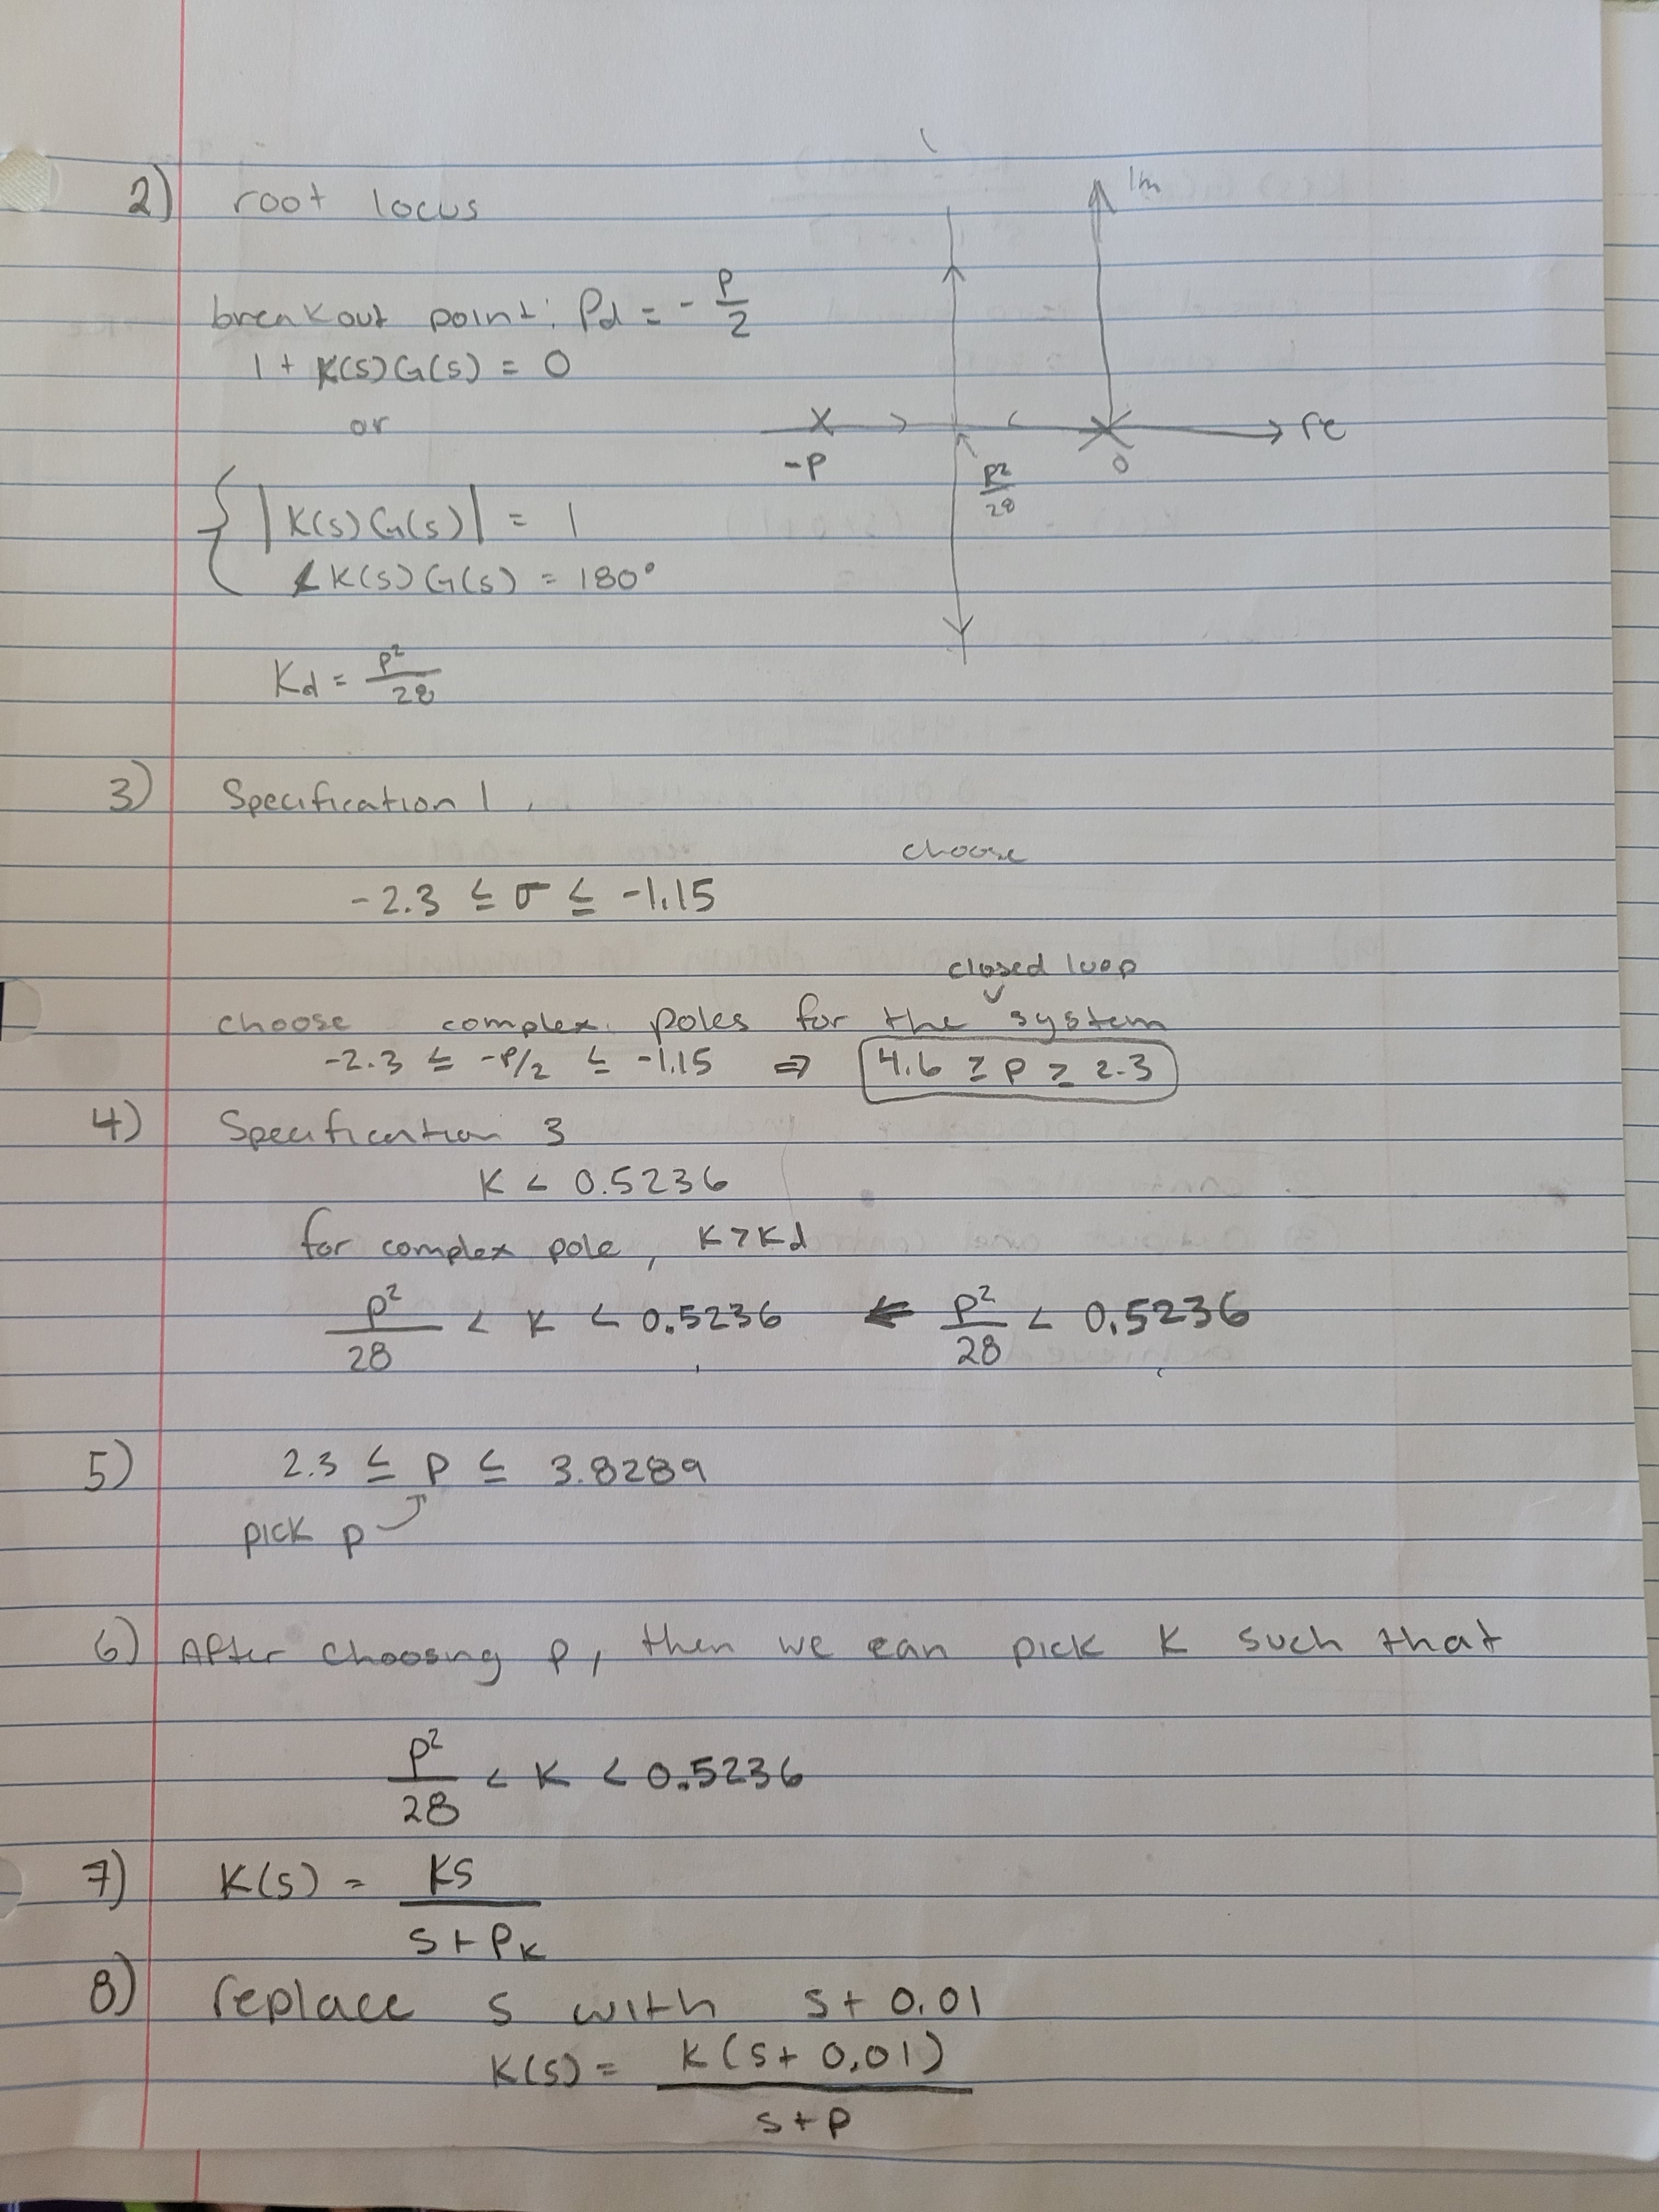 2) root locus
Im
breakout point: Pd = - P/2
1 + K(s)G(s) = 0
or
re
-P
0
P²/28
{ |K(s)G(s)| = 1
∠K(s)G(s) = 180°
Kd = P²/28
3) Specification 1
choose
-2.3 ≤ σ ≤ -1.15
closed loop
choose complex poles for the system
-2.3 ≤ -P/2 ≤ -1.15 ⇒ 4.6 ≥ P ≥ 2.3
4) Specification 3
K < 0.5236
for complex pole, K > Kd
P²/28 < K < 0.5236 ⇐ P²/28 < 0.5236
5) 2.3 ≤ P ≤ 3.8289
pick p
6) After choosing p, then we can pick K such that
P²/28 < K < 0.5236
7) K(s) = KS/S+PK
8) replace s with s+0.01
K(s) = K(s+0.01)/s+p